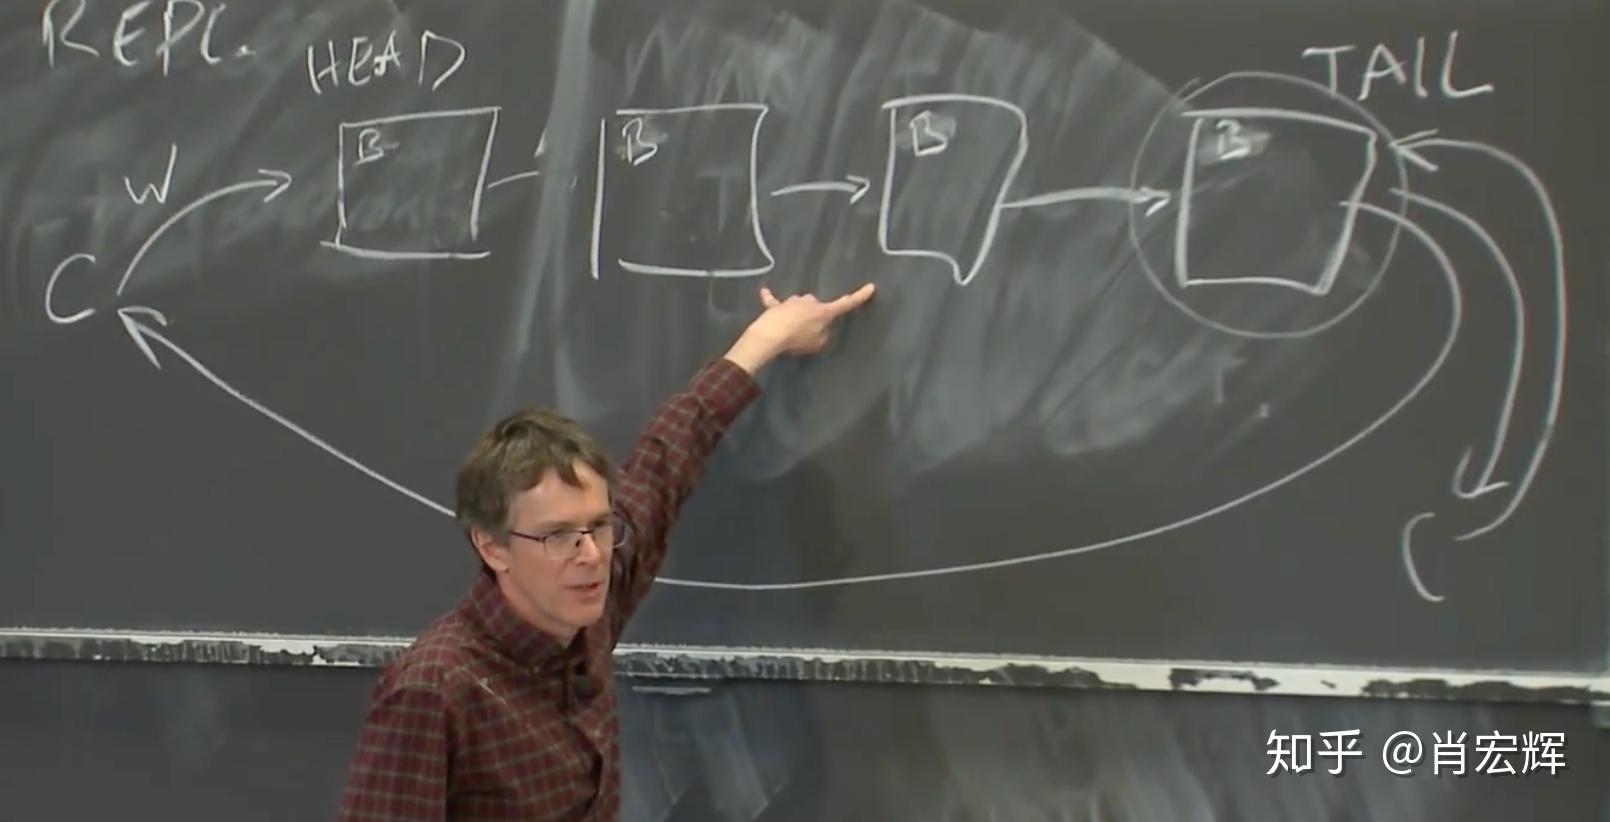 REPL.
HEAD
TAIL
B
B
B
B
W
C
C
知乎 @肖宏辉